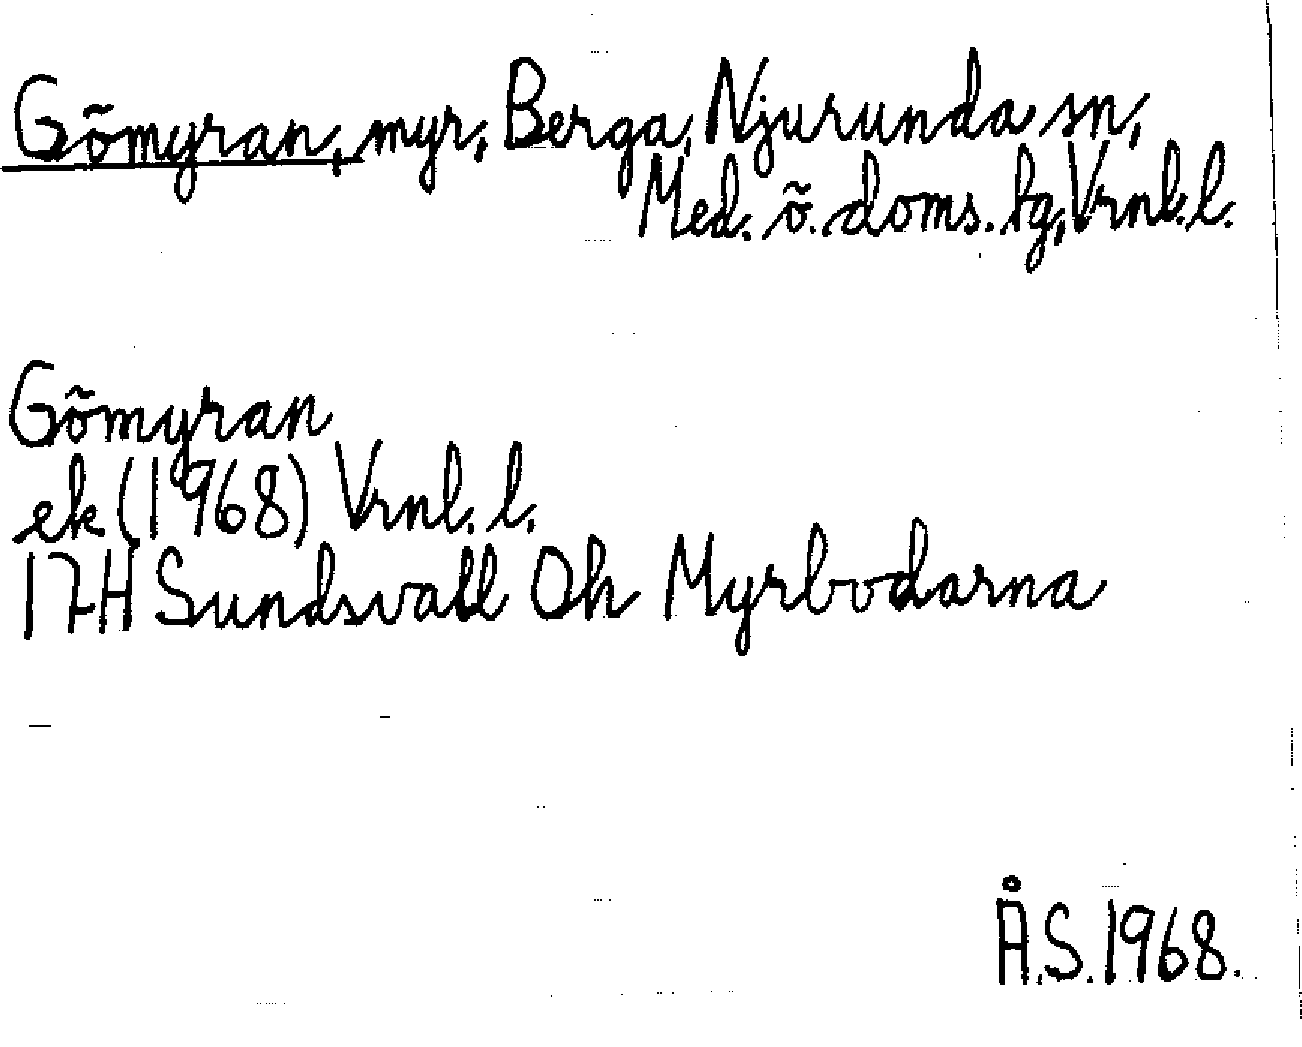 Gömyran, myr, Berga, Njurunda sn,
Med. ö. doms. tg, Vrnl. l.
Gömyran
ek (1968) Vrnl. l.
17H Sundsvall 0h Myrbodarna
Å.S. 1968.